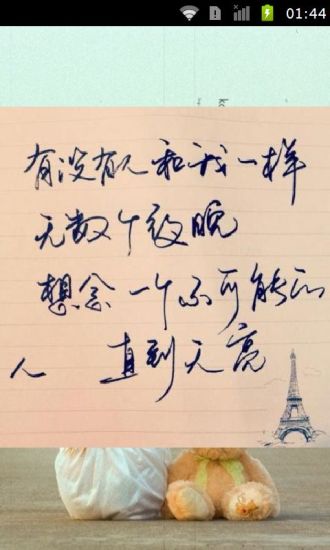 01:44
有没有人和我一样
无数个夜晚
想念一个不可能的
人 直到天亮